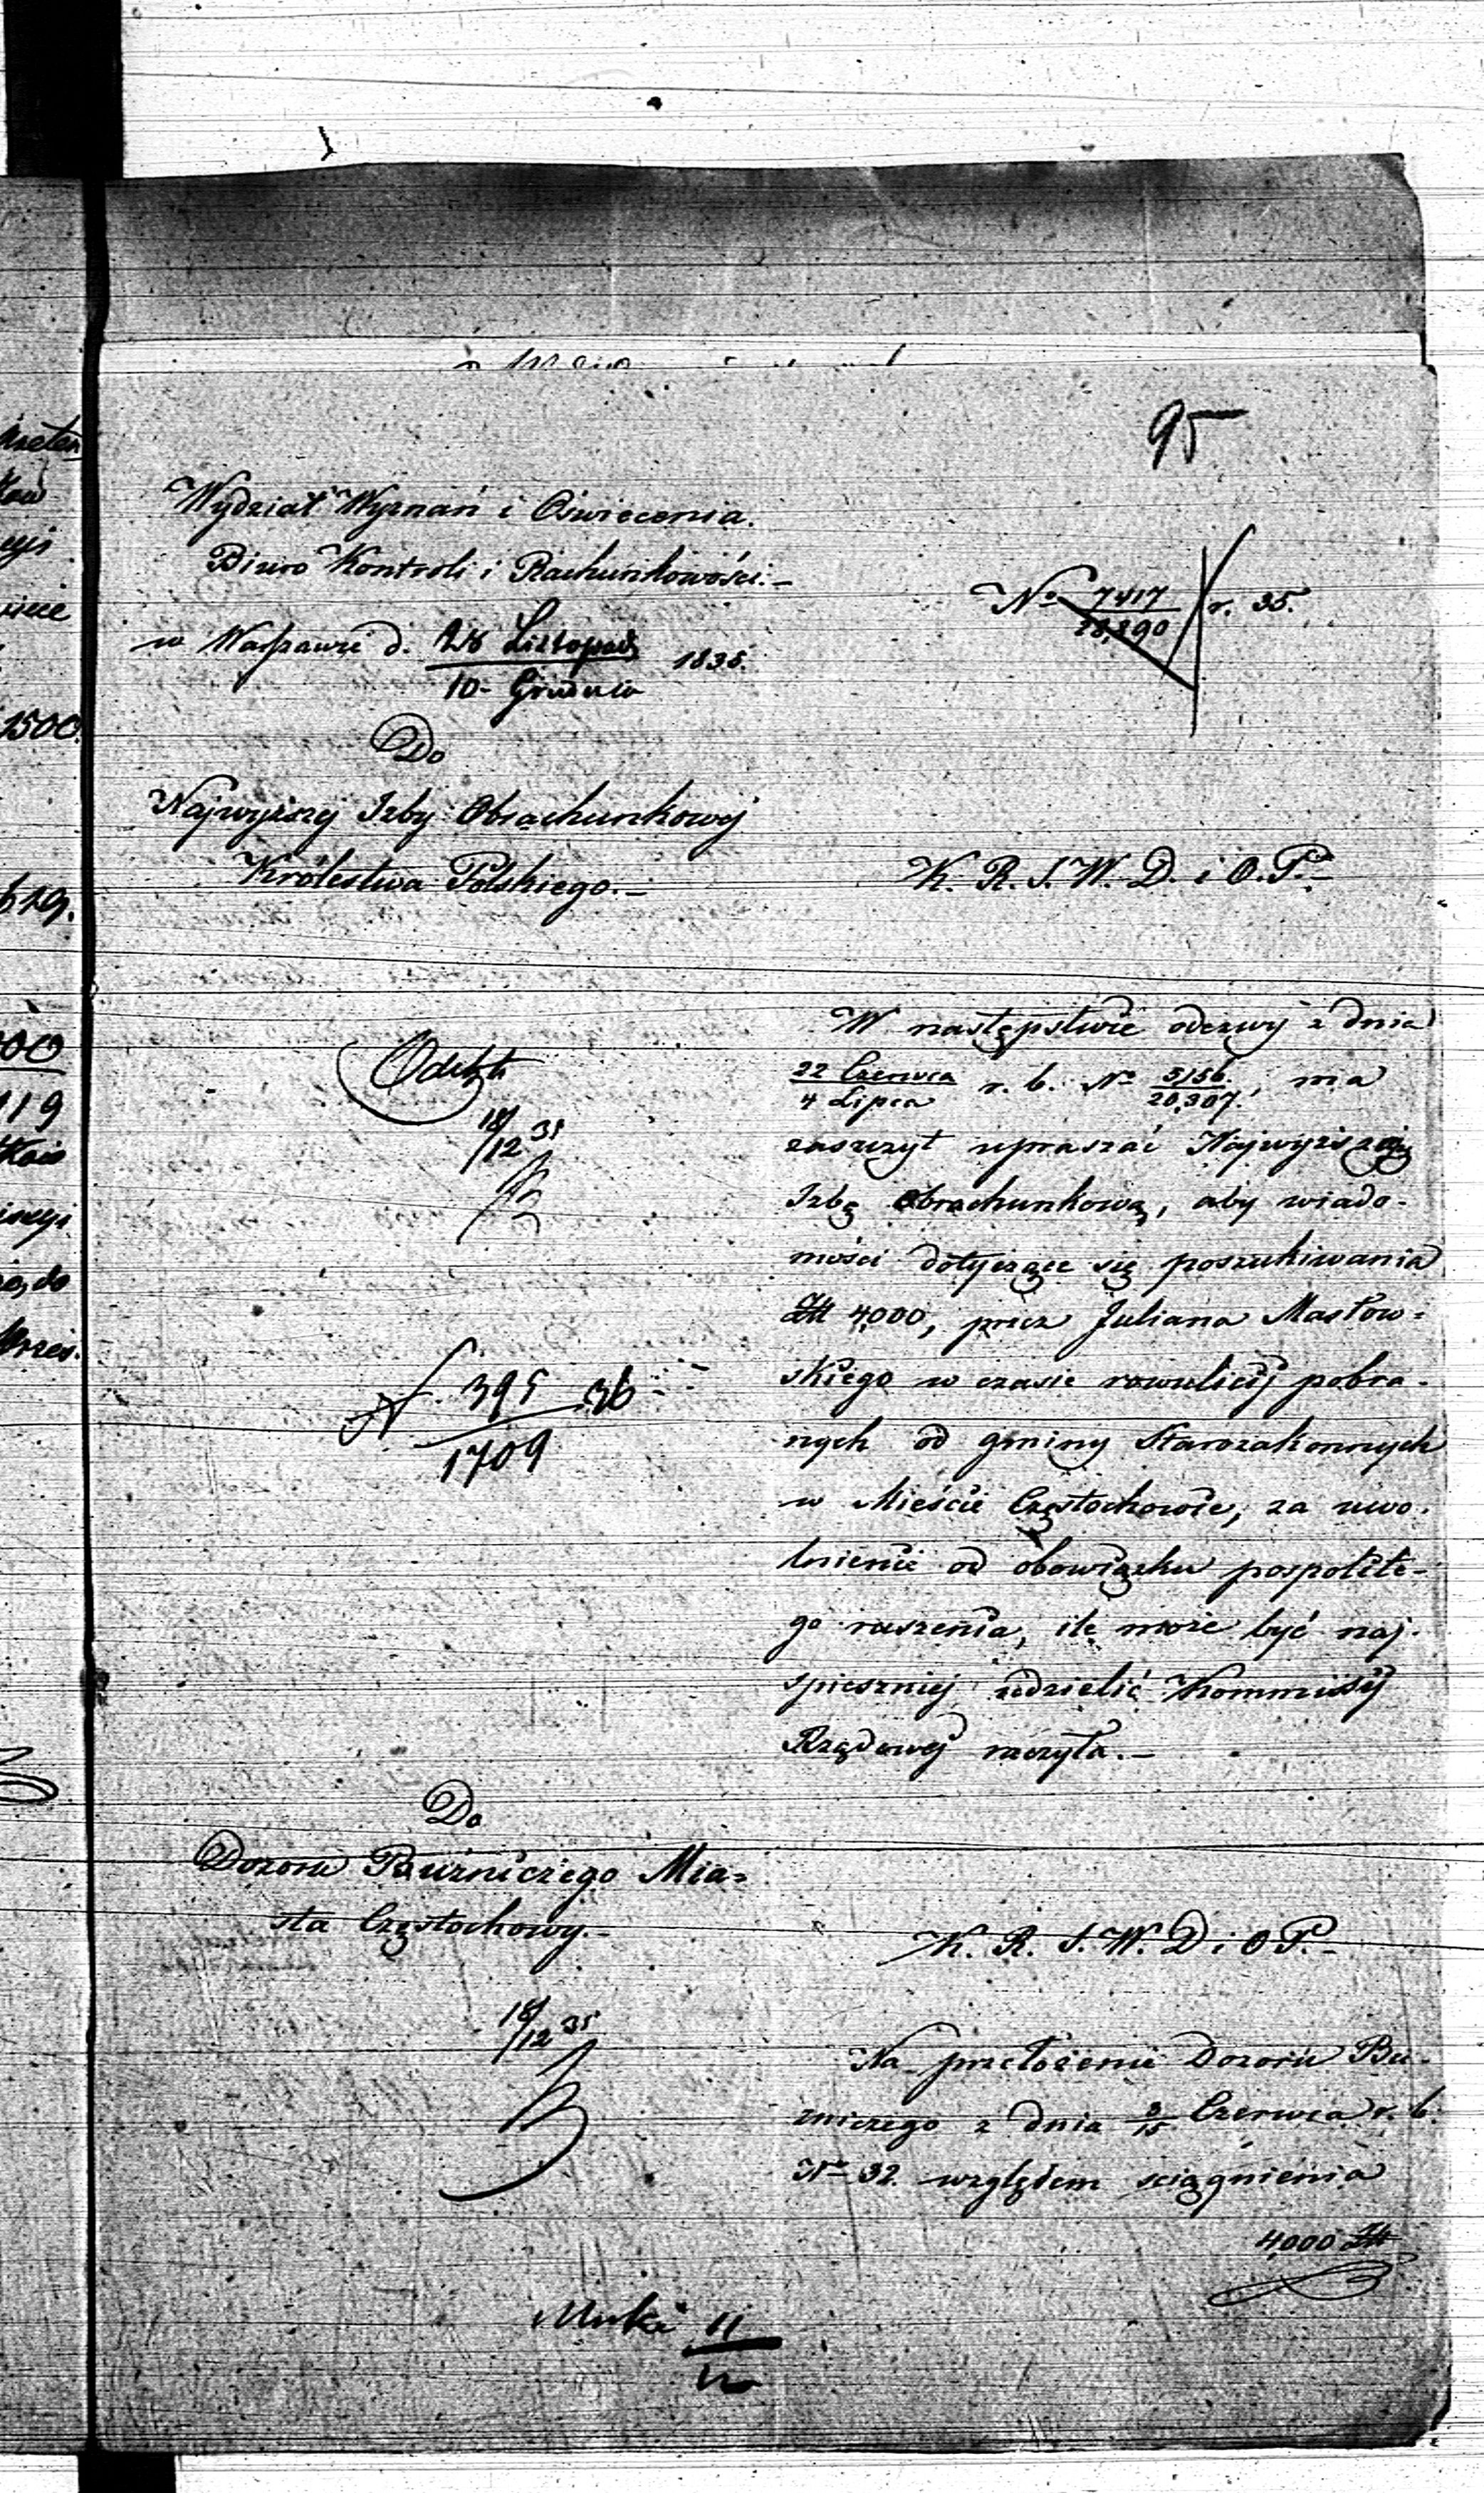 95
Wydział Wyznań i Oświecenia.
Biuro Kontroli i Rachunkowości.-
w Warszawie d. 28 Listopada / 10 Grudnia 1835.
No 7417 / 28,890 r. 35.
Do
Najwyższej Izby Obrachunkowej
Królestwa Polskiego.-
K. R. S. W. D. i O. P.-
W następstwie odezwy z dnia
22 Czerwca / 4 Lipca r. b. No 5156 / 20,307, ma
zaszczyt upraszać Najwyższą
Izbę Obrachunkową, aby wiado-
mości dotyczące się poszukiwania
Zł 4,000, przez Juliana Masłow-
skiego w czasie rewolucij pobra-
nych od gminy Starozakonnych
w Mieście Częstochowie, za uwo-
lnienie od obowiązku pospolite-
go ruszenia, ile może być naj-
spieszniej udzielić Kommissij
Rządowej raczyła.-
18/12 35
N. 395 / 1709 36
Do
Dozoru Bużniczego Mia-
sta Częstochowy.-
K. R. S. W. D i O P.-
18/12 35
Na przełożenie Dozoru Bu-
żniczego z dnia 3/15 Czerwca r. b.
No 32. względem ściągnienia
4,000 Zł
11